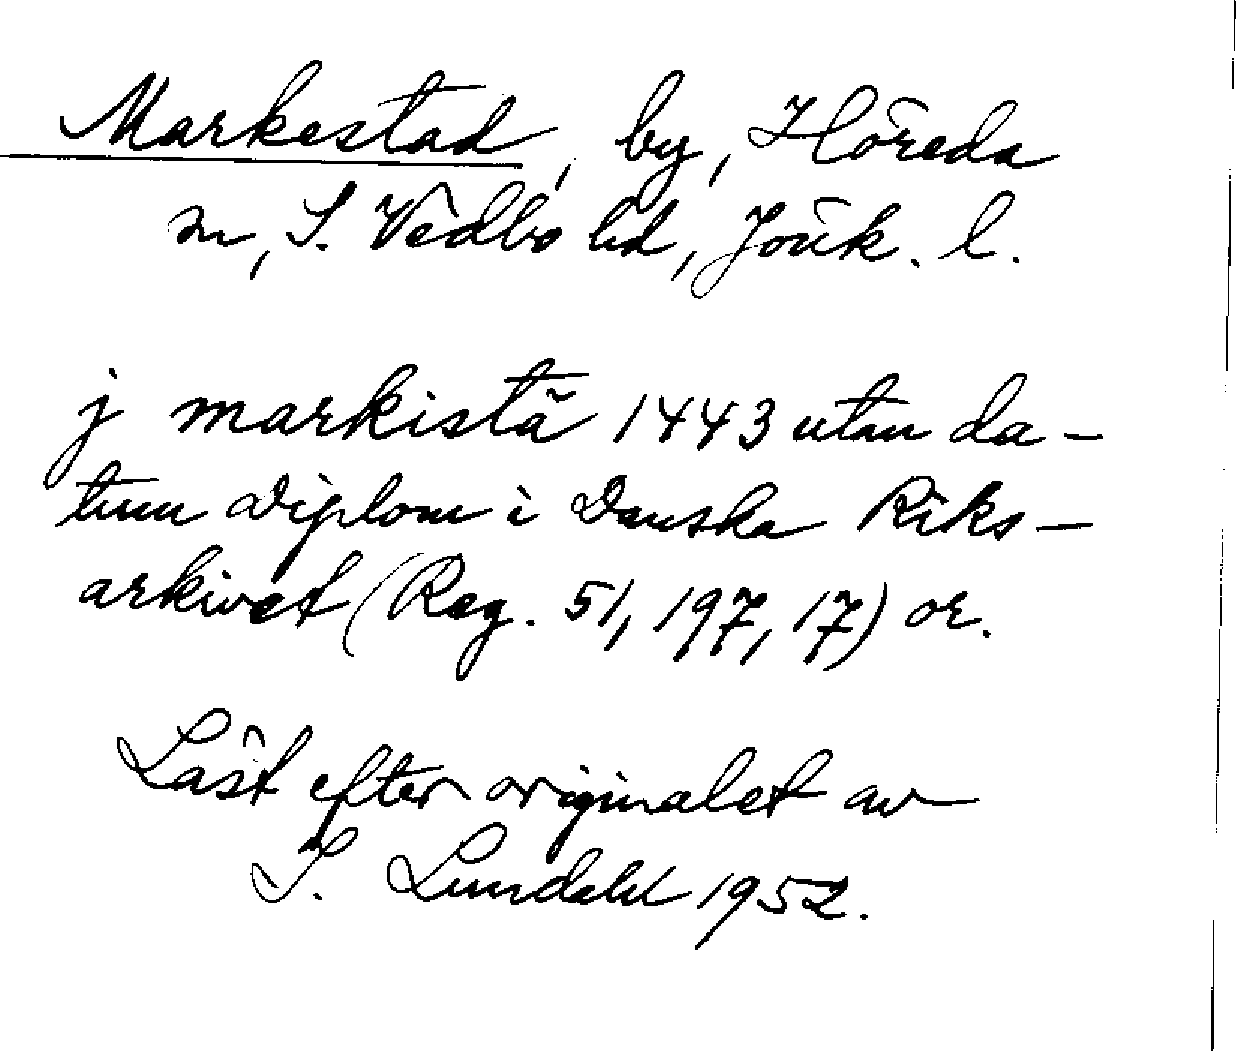 Markestad, by, Höreda
sn, S. Vedbo hd, Jönk. l.
j markistä 1443 utan da-
tum diplom i Danska Riks-
arkivet (Reg. 51, 197, 17) or.
Läst efter originalet av
I. Lundahl 1952.